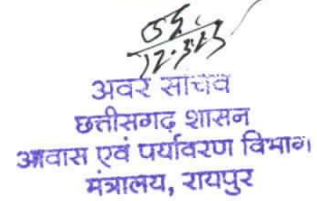 अवर सचिव
छत्तीसगढ़ शासन
आवास एवं पर्यावरण विभाग।
मंत्रालय, रायपुर